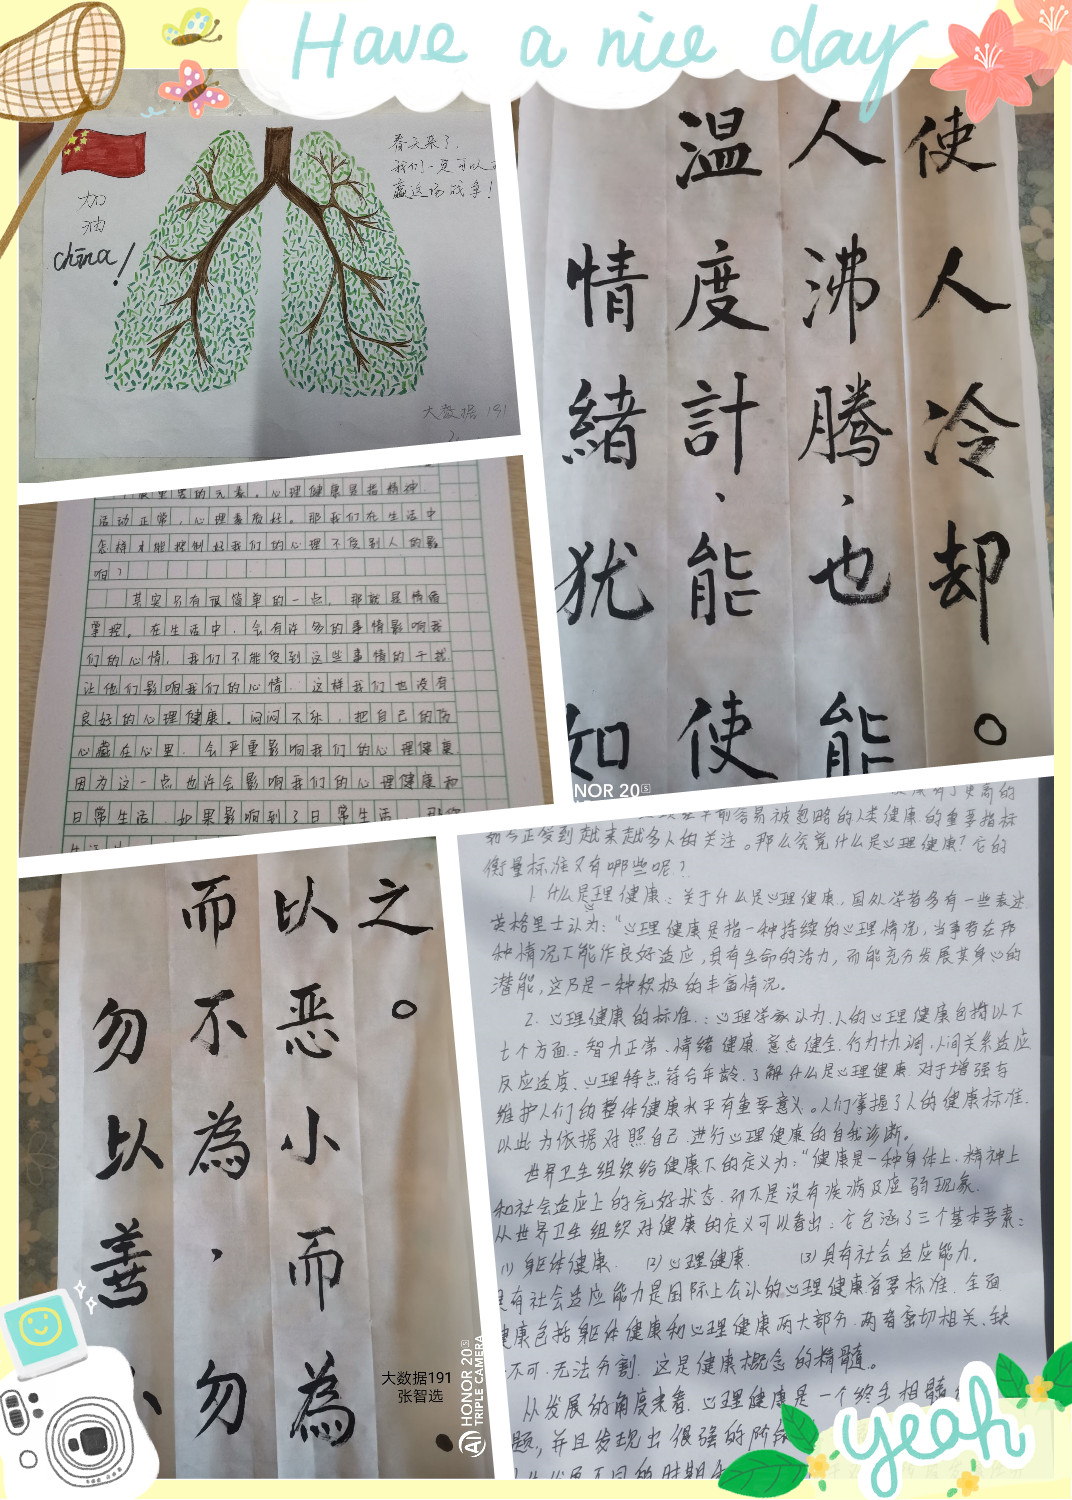 Have a nice day
加
油
china!
春天来了,
我们一定可以
赢这场战争!
大数据 191
情緒犹如
温度計、能使
人沸腾、也能
使人冷却。
的元素。心理健康是指精神
活动正常,心理素质好。那我们在生活中
怎样才能控制好我们的心理不受别人的影
响?
其实只有很简单的一点,那就是情绪
掌握。在生活中,会有许多的事情影响我
们的心情,我们不能受到这些事情的干扰
让他们影响我们的心情,这样我们也没有
良好的心理健康。闷闷不乐,把自己的伤
心藏在心里,会严重影响我们的心理健康
因为这一点也许会影响我们的心理健康和
日常生活,如果影响到了日常生活,
勿以善
而不為,勿
以恶小而為
之。
大数据191
张智选
HONOR 20S
TRIPLE CAMERA
AI
NOR 20S
容易被忽略的人类健康的重要指标
如今正受到越来越多人的关注。那么究竟什么是心理健康?它的
衡量标准又有哪些呢?
1. 什么是心理健康:关于什么是心理健康,国外学者多有一些表述
英格里士认为:"心理健康是指一种持续的心理情况,当事者在那
种情况下能作良好适应,具有生命的活力,而能充分发展其身心的
潜能,这乃是一种积极的丰富情况。
2. 心理健康的标准:心理学家认为,人的心理健康包括以下
七个方面:智力正常、情绪健康、意志健全、行为协调、人间关系适应
反应适度、心理特点符合年龄、了解什么是心理健康,对于增强与
维护人们的整体健康水平有重要意义。人们掌握了人的健康标准,
以此为依据对照自己,进行心理健康的自我诊断。
世界卫生组织给健康下的定义为:"健康是一种身体上、精神上
和社会适应上的完好状态,而不是没有疾病及虚弱现象。
从世界卫生组织对健康的定义可以看出:它包涵了三个基本要素:
(1) 躯体健康. (2) 心理健康. (3) 具有社会适应能力.
具有社会适应能力是国际上公认的心理健康首要标准,全面
健康包括躯体健康和心理健康两大部分,两者密切相关,缺
不可,无法分割,这是健康概念的精髓。
从发展的角度来看,心理健康是一个终生相随
题,并且发现出很强的阶
yeah